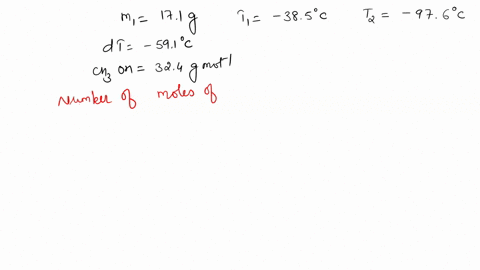 m₁ = 17.1 g T₁ = -38.5°c T₂ = -97.6°c
dT = -59.1°c
CH₃ OH = 32.4 g mot/
Number of moles of